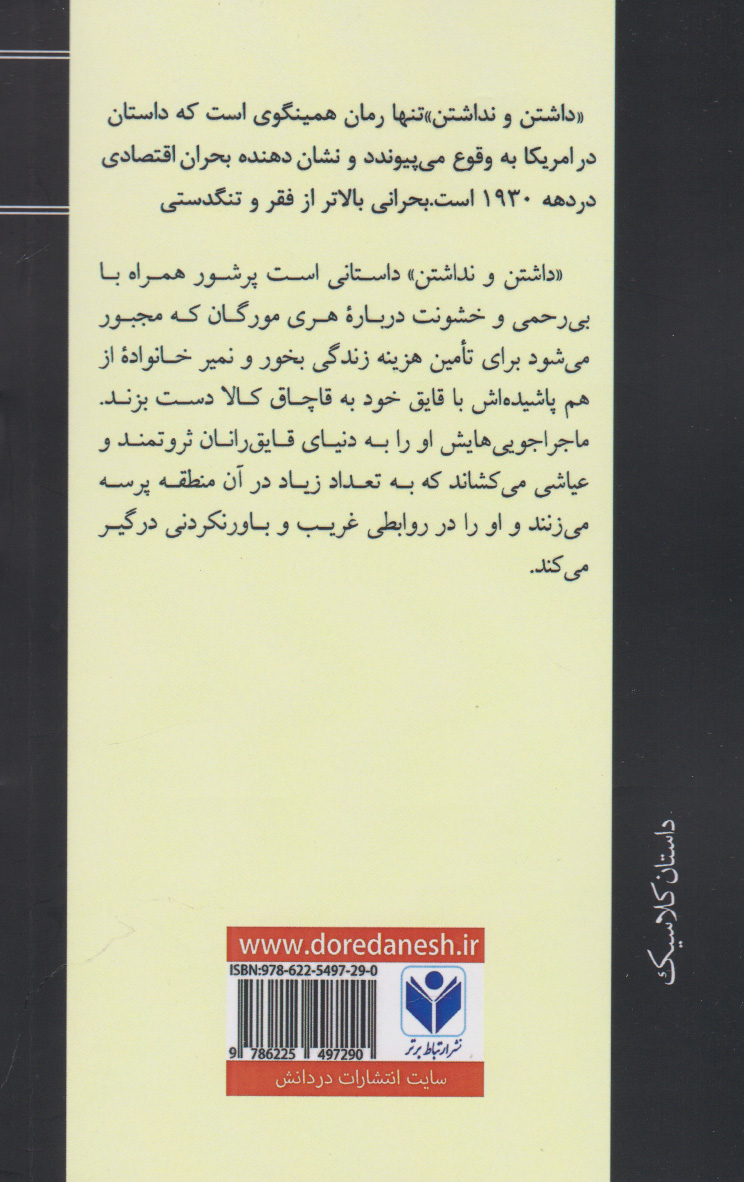 «داشتن و نداشتن»تنها رمان همینگوی است که داستان
در امریکا به وقوع می‌پیوندد و نشان دهنده بحران اقتصادی
دردهه ۱۹۳۰ است.بحرانی بالاتر از فقر و تنگدستی
«داشتن و نداشتن» داستانی است پرشور همراه با
بی‌رحمی و خشونت دربارهٔ هری مورگان که مجبور
می‌شود برای تأمین هزینه زندگی بخور و نمیر خانوادهٔ از
هم پاشیده‌اش با قایق خود به قاچاق کالا دست بزند.
ماجراجویی‌هایش او را به دنیای قایق‌رانان ثروتمند و
عیاشی می‌کشاند که به تعداد زیاد در آن منطقه پرسه
می‌زنند و او را در روابطی غریب و باورنکردنی درگیر
می‌کند.
داستان کلاسیک
www.doredanesh.ir
ISBN:978-622-5497-29-0
9 786225 497290
نشر ارتباط برتر
سایت انتشارات دردانش